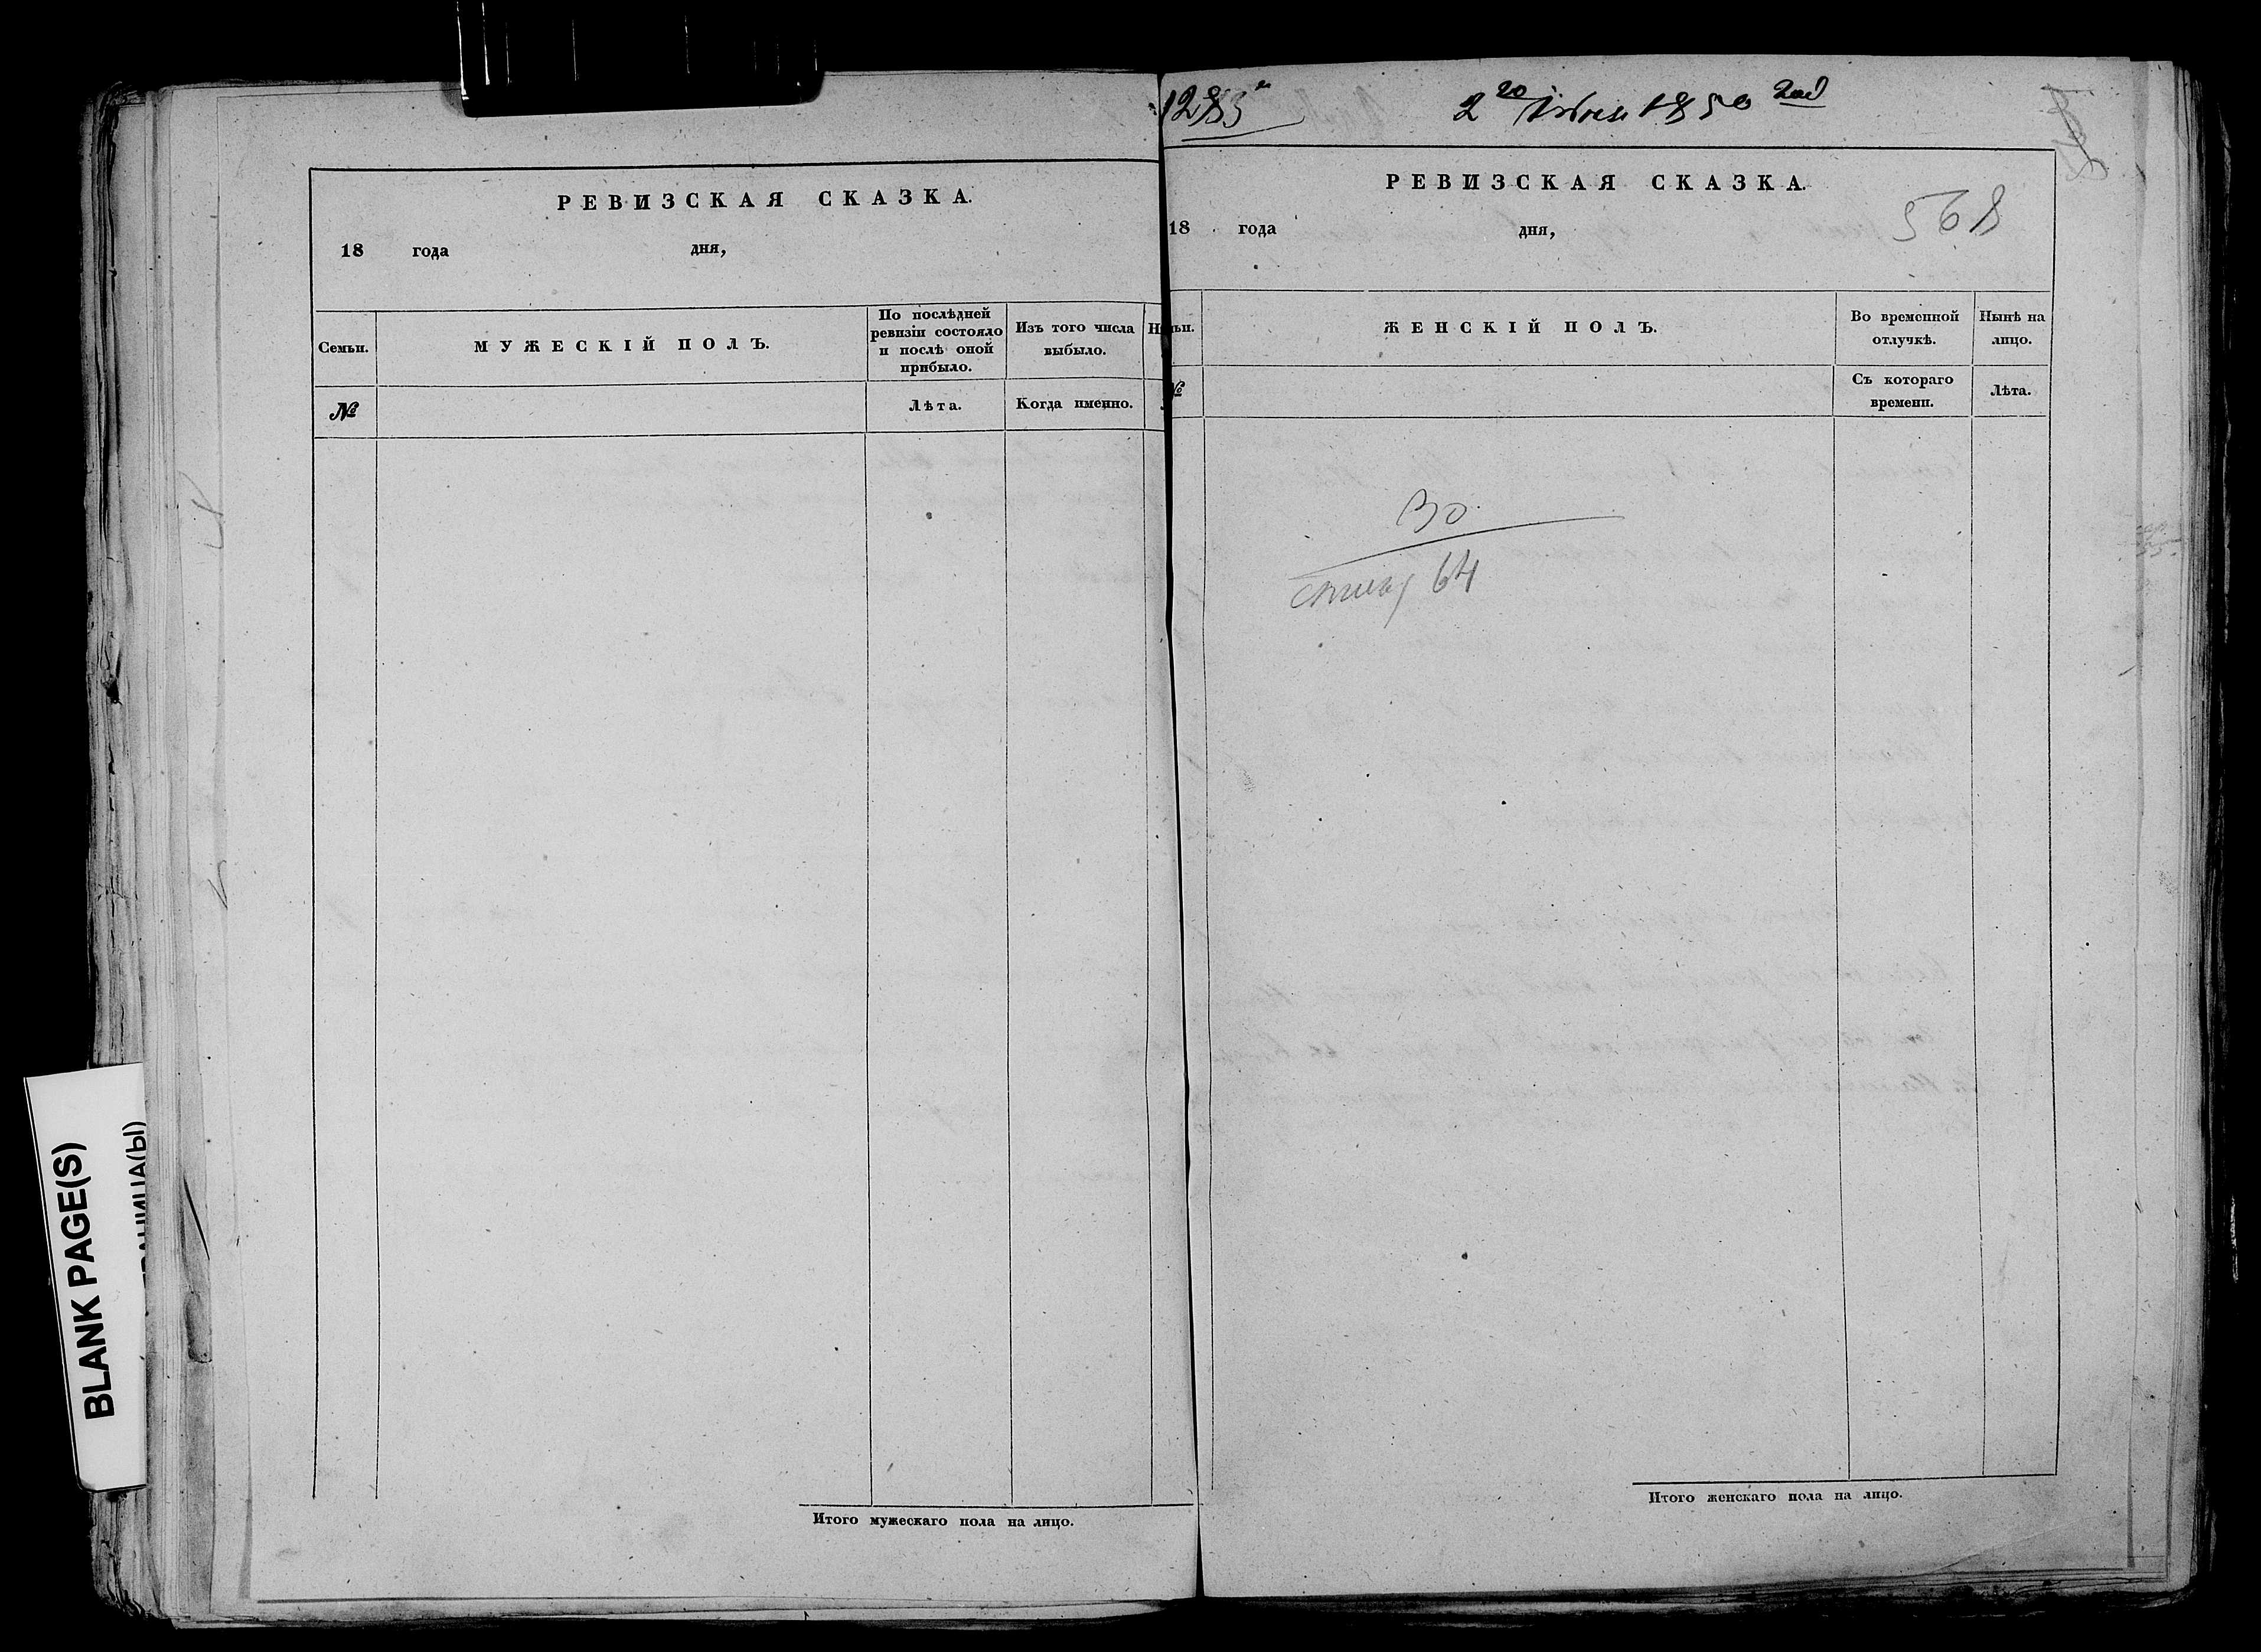 РЕВИЗСКАЯ СКАЗКА.
18 года дня,
Семьи.
МУЖЕСКІЙ ПОЛЪ.
По послѣдней
ревизіи состояло
и послѣ оной
прибыло.
Изъ того числа
выбыло.
№
Лѣта.
Когда именно.
Итого мужескаго пола на лицо.
2го Іюня 1850 год
РЕВИЗСКАЯ СКАЗКА.
568
18 года дня,
ьи.
ЖЕНСКІЙ ПОЛЪ.
Во временной
отлучкѣ.
Нынѣ на
лицо.
№
Съ котораго
времени.
Лѣта.
30
64
Итого женскаго пола на лицо.
BLANK PAGE(S)